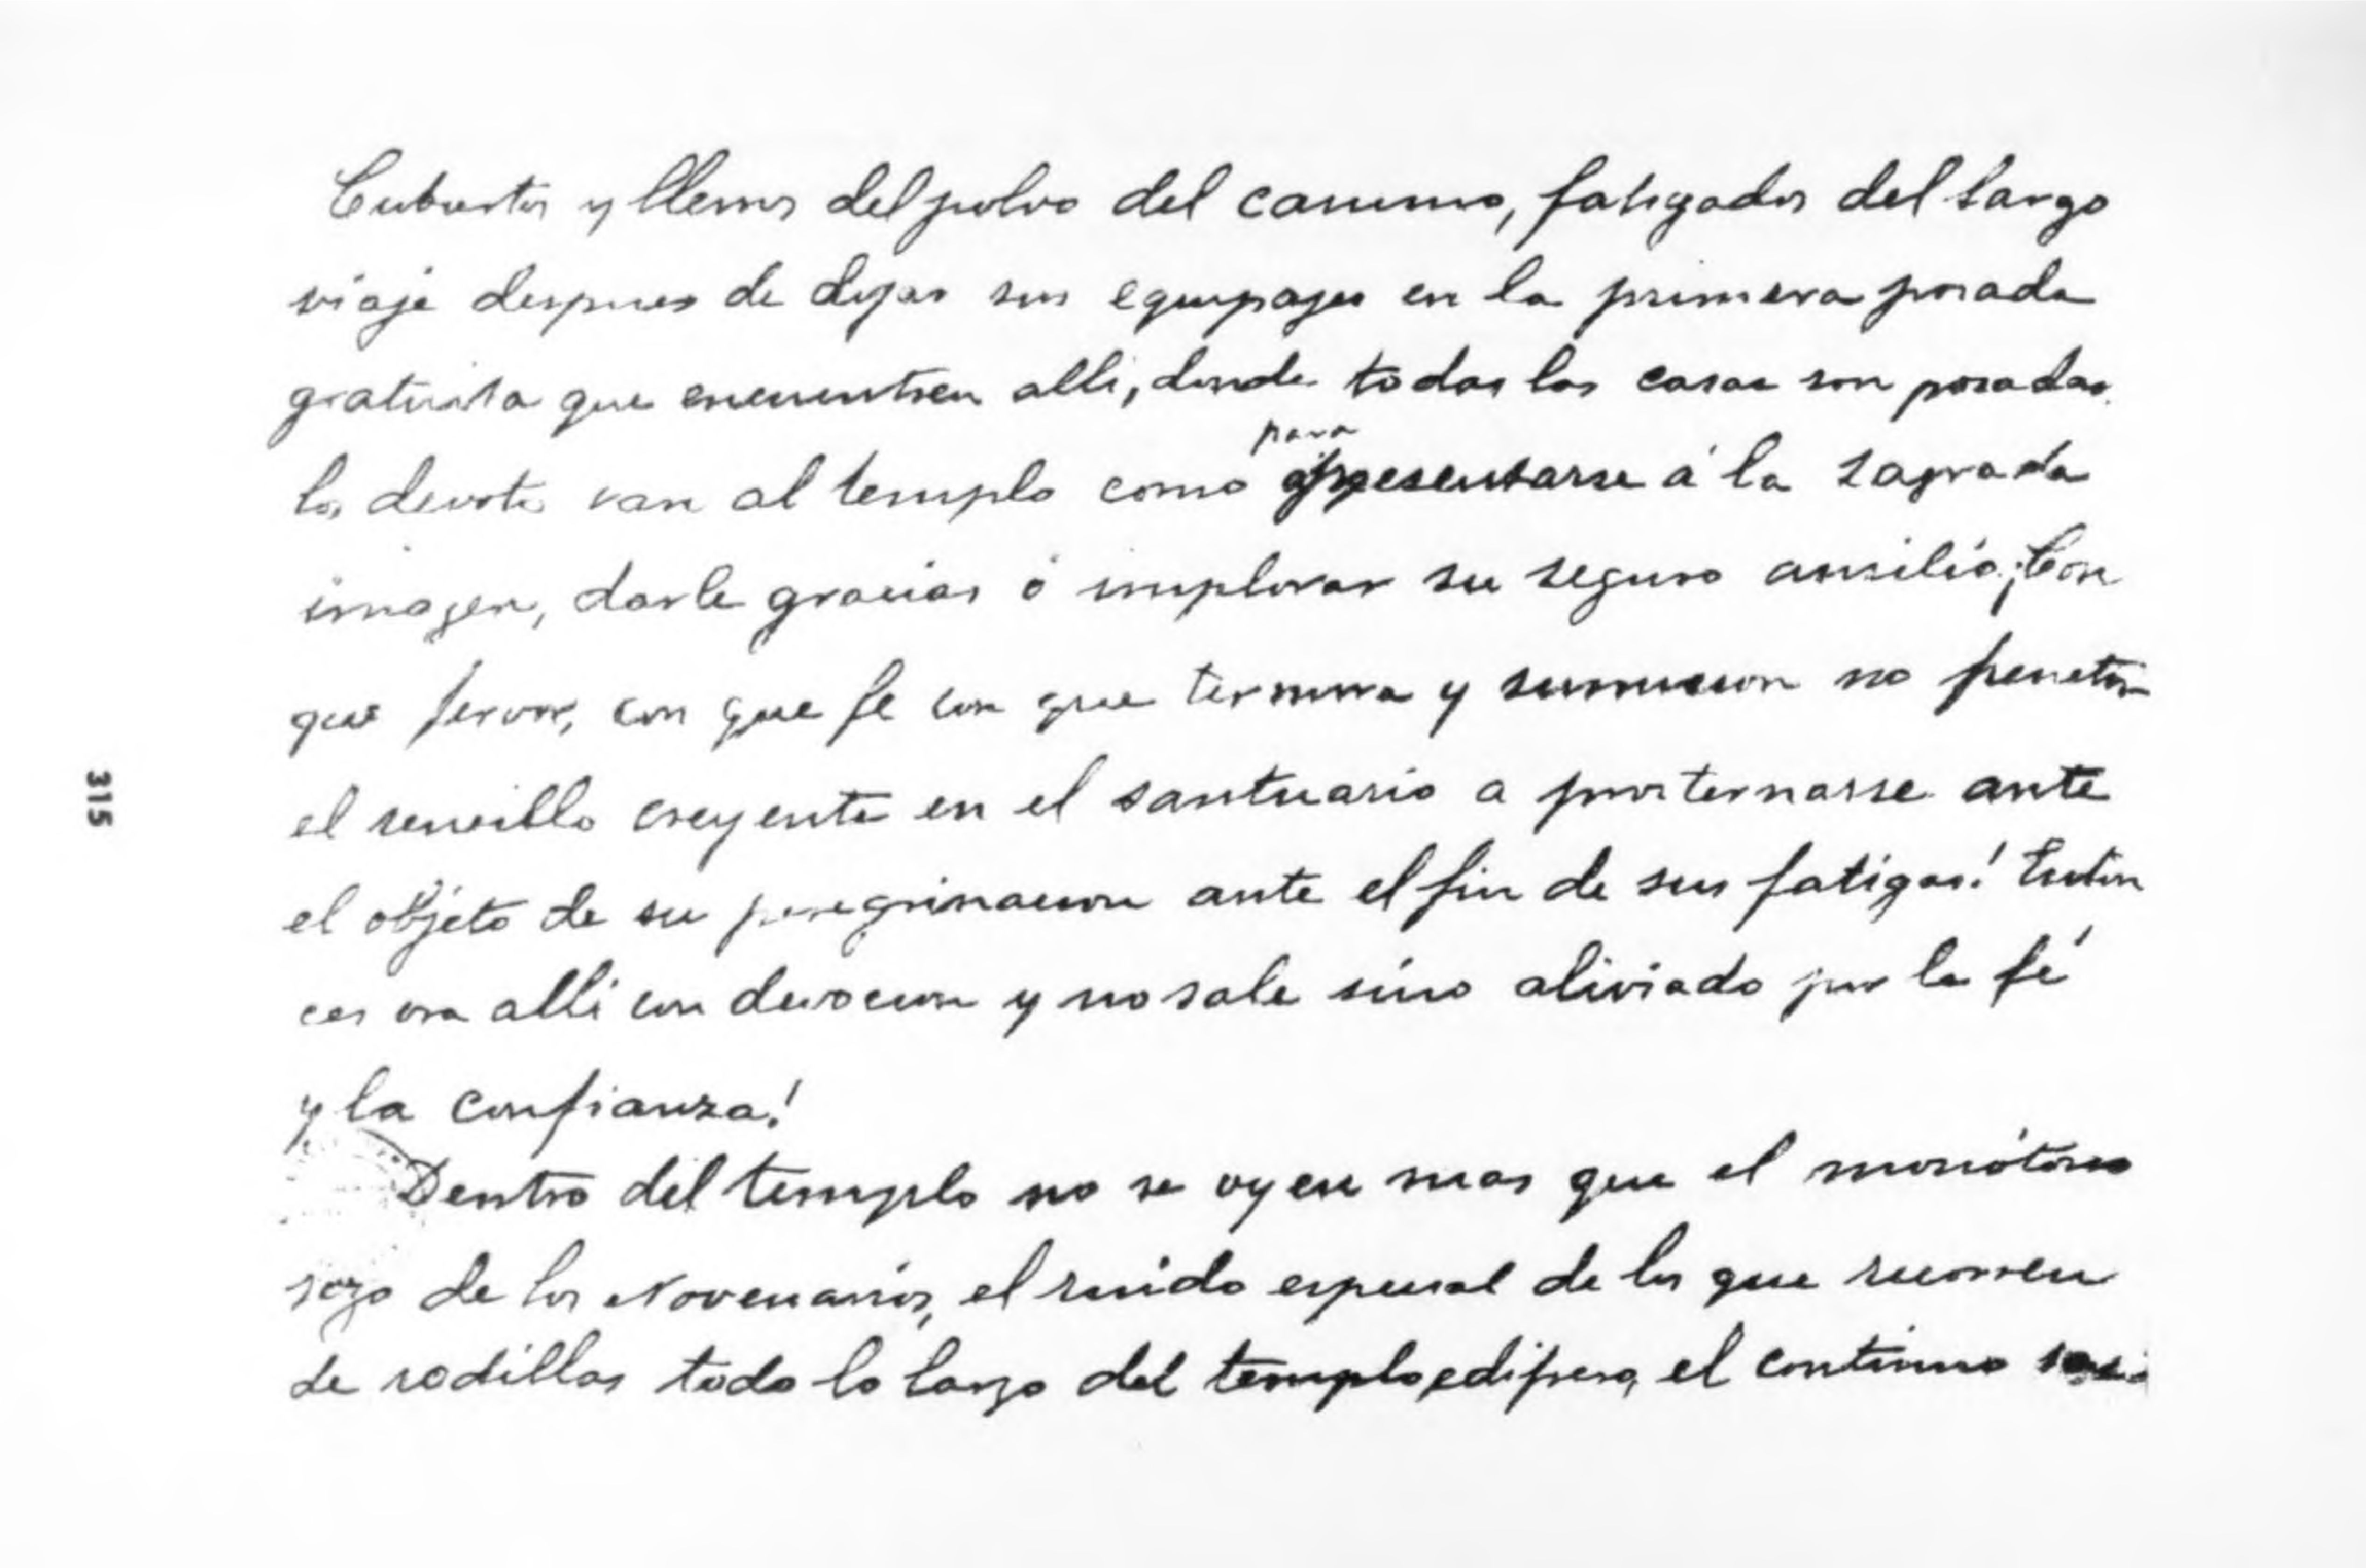 Cubiertos y llenos del polvo del camino, fatigados del largo
viaje despues de dejar sus equipajes en la primera posada
gratuita que encuentren alli, donde todas las casas son posadas.
para
los devotos van al templo como presentarse á la sagrada
imagen, darle gracias ó implorar su seguro ausilio; ¡Con
que fervor, con que fe con que ternura y sumision no penetra
el sencillo creyente en el santuario a posternarse ante
el objeto de su peregrinacion ante el fin de sus fatigas! Enton
ces ora alli con devocion y no sale sino aliviado por la fé
y la confianza!
Dentro del templo no se oyen mas que el monótono
rezo de los Novenarios, el ruido especial de los que recorren
de rodillas todo lo largo del templo, el continuo
315